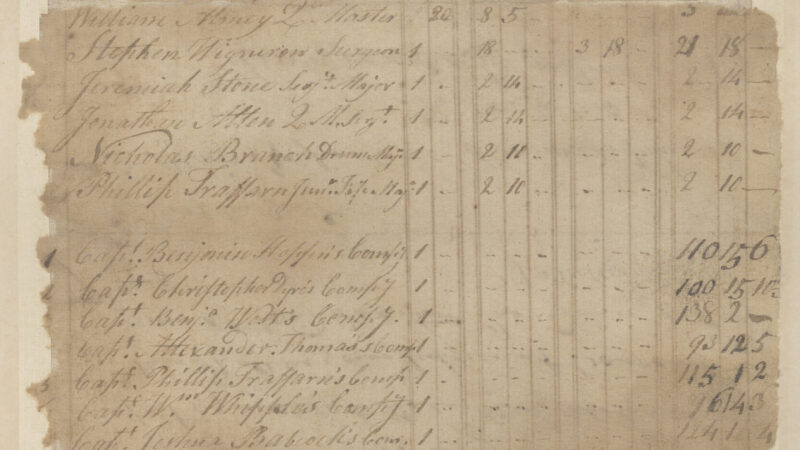 William Almy Qr Master 20 8 5 3
Stephen Wigneron Surgeon 1 18 3 18 21 18 —
Jeremiah Stone Serjt. Major 1 2 14 2 14 —
Jonathan Allen Q M. Serjt 1 2 14 2 14 —
Nicholas Branch Drum Majr 1 2 10 2 10 —
Phillip Traffarn Junr. Fife Majr 1 2 10 2 10 —
1 Capt. Benjamin Hoppin's Compy 1 110 15 6
2 Capt. Christopher Compy 1 100 15
Capt. Benja Compy. 1 138 2 —
Capt. Allexander Thomas's Comp 1 93 12 5
5 Capt. Phillip Traffarn's Comp 1 115 1 2
Capt. Wm Whipple's Compy 1 6 14 3
Capt. Joshua Babcock's Com. 1 124 1 4